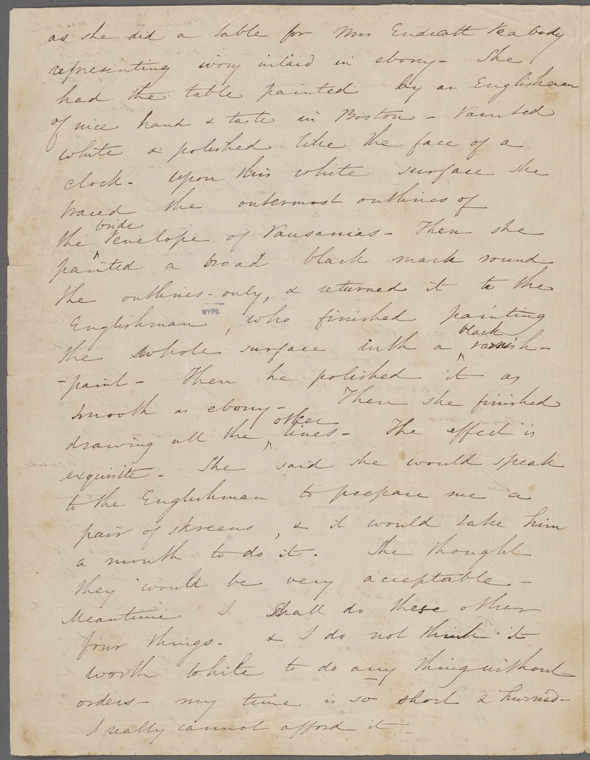 as she did a table for Mrs Endicott Peabody
representing ivory inlaid in ebony - She
had the table painted by an Englishman
of nice hand & taste in Boston - Painted
white & polished like the face of a
clock - Upon this white surface she
traced the outermost outlines of
bride
the Penelope of Pausanias - Then she
painted a broad black mark round
the outlines - only, & returned it to the
NYPL
Englishman, who finished painting
black
the whole surface with a varnish-
-paint - Then he polished it as
smooth as ebony - Then she finished
other
drawing all the lines - The effect is
exquisite - She said she would speak
to the Englishman to prepare me a
pair of skreens, & it would take him
a month to do it - She thought
they would be very acceptable -
Meantime I shall do these other
four things - & I do not think it
worth while to do any thing without
orders - my time is so short & hurried -
I really cannot afford it -